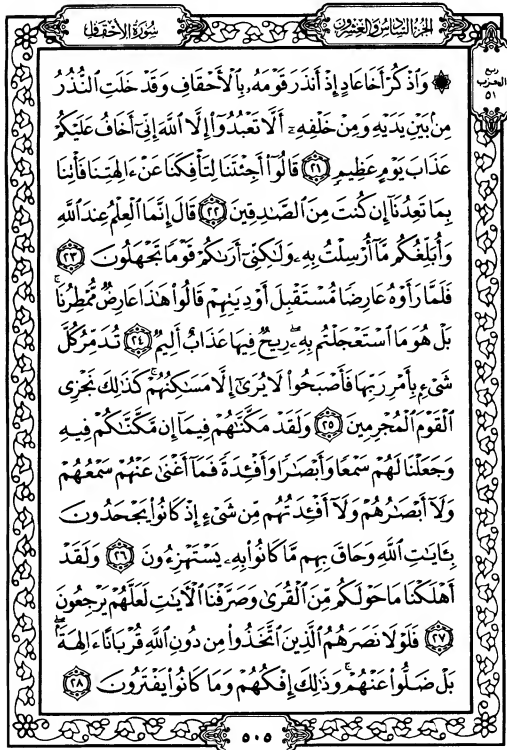 سُورَةُ الأَحْقَافِ
الجُزْءُ السَّادِسُ وَالعِشْرُونَ
رُبع
الحِزْب
٥١
۞ وَٱذْكُرْ أَخَا عَادٍ إِذْ أَنذَرَ قَوْمَهُۥ بِٱلْأَحْقَافِ وَقَدْ خَلَتِ ٱلنُّذُرُ
مِنۢ بَيْنِ يَدَيْهِ وَمِنْ خَلْفِهِۦٓ أَلَّا تَعْبُدُوٓا۟ إِلَّا ٱللَّهَ إِنِّىٓ أَخَافُ عَلَيْكُمْ
عَذَابَ يَوْمٍ عَظِيمٍ ٢١ قَالُوٓا۟ أَجِئْتَنَا لِتَأْفِكَنَا عَنْ ءَالِهَتِنَا فَأْتِنَا
بِمَا تَعِدُنَآ إِن كُنتَ مِنَ ٱلصَّـٰدِقِينَ ٢٢ قَالَ إِنَّمَا ٱلْعِلْمُ عِندَ ٱللَّهِ
وَأُبَلِّغُكُم مَّآ أُرْسِلْتُ بِهِۦ وَلَـٰكِنِّىٓ أَرَىٰكُمْ قَوْمًا تَجْهَلُونَ ٢٣
فَلَمَّا رَأَوْهُ عَارِضًا مُّسْتَقْبِلَ أَوْدِيَتِهِمْ قَالُوا۟ هَـٰذَا عَارِضٌ مُّمْطِرُنَا ۚ
بَلْ هُوَ مَا ٱسْتَعْجَلْتُم بِهِۦ ۖ رِيحٌ فِيهَا عَذَابٌ أَلِيمٌ ٢٤ تُدَمِّرُ كُلَّ
شَىْءٍۭ بِأَمْرِ رَبِّهَا فَأَصْبَحُوا۟ لَا يُرَىٰٓ إِلَّا مَسَـٰكِنُهُمْ ۚ كَذَٰلِكَ نَجْزِى
ٱلْقَوْمَ ٱلْمُجْرِمِينَ ٢٥ وَلَقَدْ مَكَّنَّـٰهُمْ فِيمَآ إِن مَّكَّنَّـٰكُمْ فِيهِ
وَجَعَلْنَا لَهُمْ سَمْعًا وَأَبْصَـٰرًا وَأَفْـِٔدَةً فَمَآ أَغْنَىٰ عَنْهُمْ سَمْعُهُمْ
وَلَآ أَبْصَـٰرُهُمْ وَلَآ أَفْـِٔدَتُهُم مِّن شَىْءٍ إِذْ كَانُوا۟ يَجْحَدُونَ
بِـَٔايَـٰتِ ٱللَّهِ وَحَاقَ بِهِم مَّا كَانُوا۟ بِهِۦ يَسْتَهْزِءُونَ ٢٦ وَلَقَدْ
أَهْلَكْنَا مَا حَوْلَكُم مِّنَ ٱلْقُرَىٰ وَصَرَّفْنَا ٱلْـَٔايَـٰتِ لَعَلَّهُمْ يَرْجِعُونَ
٢٧ فَلَوْلَا نَصَرَهُمُ ٱلَّذِينَ ٱتَّخَذُوا۟ مِن دُونِ ٱللَّهِ قُرْبَانًا ءَالِهَةًۢ ۖ
بَلْ ضَلُّوا۟ عَنْهُمْ ۚ وَذَٰلِكَ إِفْكُهُمْ وَمَا كَانُوا۟ يَفْتَرُونَ ٢٨
٥٠٥